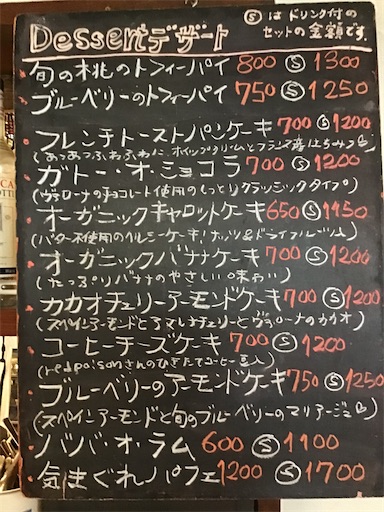 Dessert デザート
Ⓢはドリンク付の
セットの金額です。
旬の桃のトフィーパイ 800 Ⓢ 1300
ブルーベリーのトフィーパイ 750 Ⓢ 1250
フレンチトーストパンケーキ 700 Ⓢ 1200
(あつあつふわふわに、ホイップクリームとフランス産はちみつ
ガトー・オ・ショコラ 700 Ⓢ 1200
(ヴァローナのチョコレート使用のしっとりクラッシックタイプ)
オーガニックキャロットケーキ 650 Ⓢ 1150
(バター不使用のヘルシーケーキ!ナッツ&ドライフルーツ入)
オーガニックバナナケーキ 700 Ⓢ 1200
(たっぷりバナナのやさしい味わい)
カカオチェリーアーモンドケーキ 700 Ⓢ 1200
(スペインアーモンドとアマレナチェリーとヴァローナのカカオ)
コーヒーチーズケーキ 700 Ⓢ 1200
(red poisonさんのひきたてコーヒー豆入)
ブルーベリーのアーモンドケーキ 750 Ⓢ 1250
(スペインアーモンドと旬のブルーベリーのマリアージュ
ババ・オ・ラム 600 Ⓢ 1100
気まぐれパフェ 1200 Ⓢ 1700